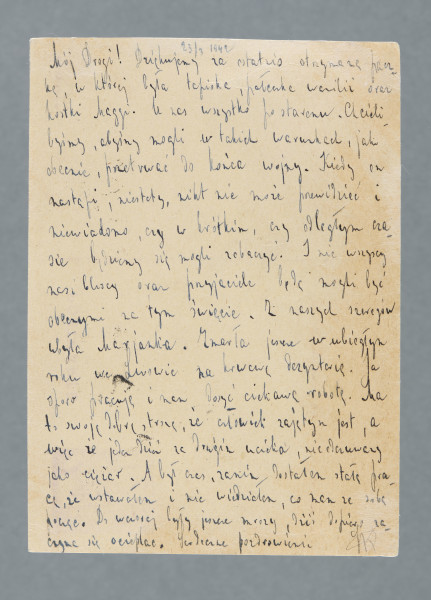 25/3 1942
Mój Drogi! Dziękujemy za ostatnio otrzymaną pacz-
kę, w której była tapioka, pałeczka wanilii oraz
kostki Maggi. U nas wszystko po staremu. Chcieli
byśmy, abyśmy mogli w takich warunkach, jak
obecnie, przetrwać do końca wojny. Kiedy on
nastąpi, niestety, nikt nie może przewidzieć i
niewiadomo, czy w krótkim, czy odległym cza-
sie będziemy się mogli zobaczyć. I nie wszyscy
nasi bliscy oraz przyjaciele będą mogli być
obecnymi na tym święcie. Z naszych szeregów
ubyła Marjanka. Zmarła jeszcze w ubiegłym
roku we Lwowie na krwawą dezynterię. Ja
sporo pracuję i mam dosyć ciekawą robotę. Ma
to swoją dobrą stronę, że człowiek zajętym jest, a
więc że jeden dzień za drugim ucieka, nieodczuwany
jako ciężar. A był czas, zanim dostałem stałą pra-
cę, że wstawałem i nie wiedziałem, co mam ze sobą
począć. Do wczoraj były jeszcze mrozy, dziś dopiero za-
czyna się ocieplać. Serdeczne pozdrowienia